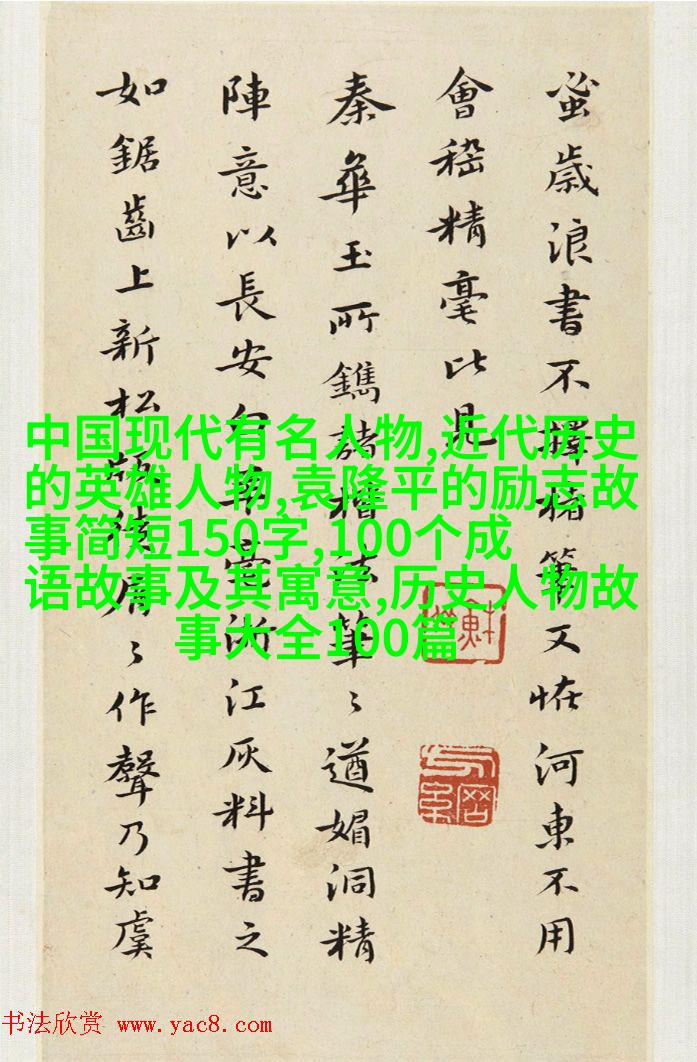 蚤歲浪書不擇楮筆又恠河東不用
會稽精毫此見
秦華玉所鐫諸楷法筆〻遒媚洞精
陣意以長安浙江灰料書之
如鋸齒上新松屑〻作聲乃知虞
中国现代有名人物,近代历史
的英雄人物,袁隆平的励志故
事简短150字,100个成
语故事及其寓意,历史人物故
事大全100篇
书法欣赏 www.yac8.com